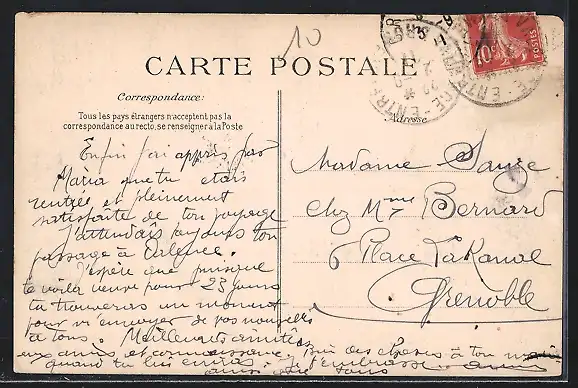 10
CARTE POSTALE
Correspondance:
Tous les pays étrangers n'acceptent pas la
correspondance au recto, se renseigner à la Poste
Adresse
10c
POSTES
Enfin j'ai appris par
Maria que tu étais
rentrée et pleinement
satisfaite de ton voyage
J'attendais toujours ton
passage à Valence.
J'espère que puisque
te voilà veuve pour 23 jours
tu trouveras un moment
pour m'envoyer de tes nouvelles
à tous. Meilleures amitiés
aux amis et connaissance, bien des choses à ton
quand tu lui écriras. Je t'embrasse
ainsi que tous
Madame Sauze
chez Mme Bernard
6 Place
Grenoble